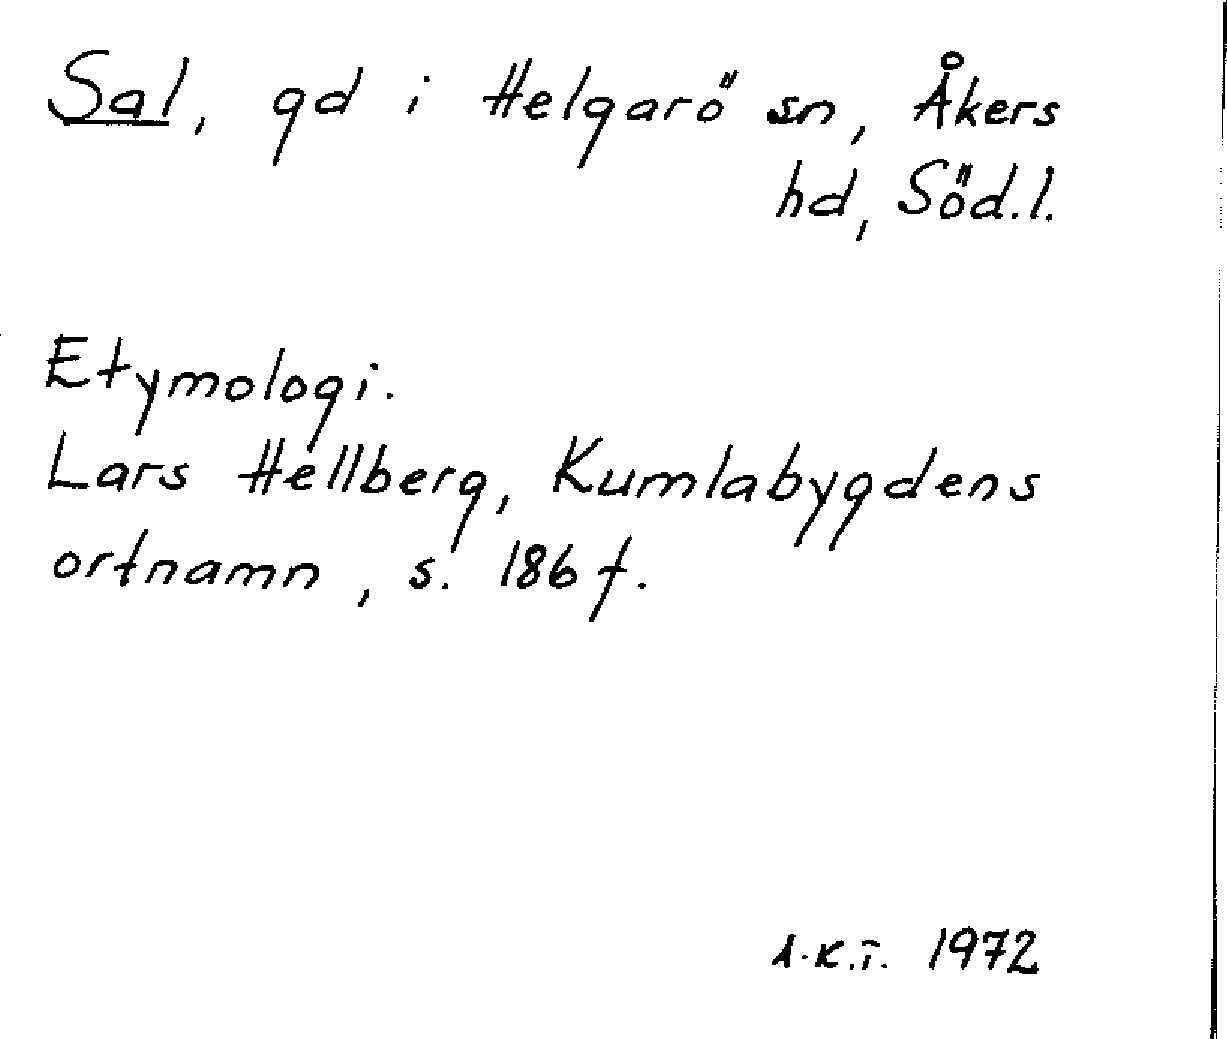 Sal, gd i Helgarö sn, Åkers
hd, Söd.l.
Etymologi.
Lars Hellberg, Kumlabygdens
ortnamn, s. 186 f.
A.K.T. 1972